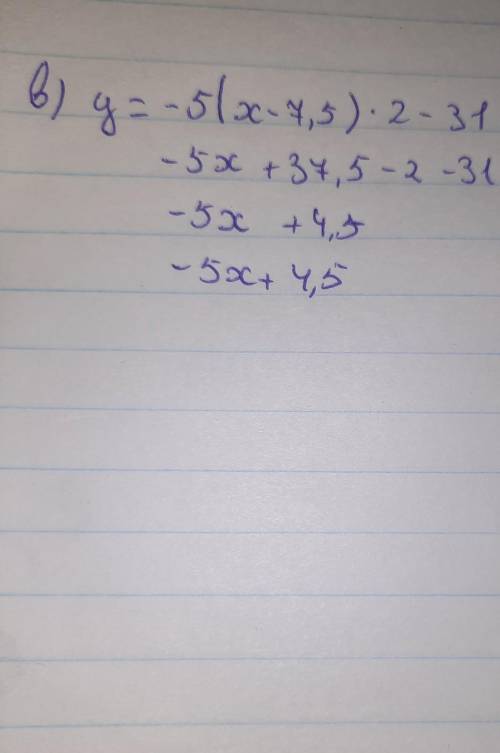 в) y = -5(x-7,5)·2-31
-5x +37,5-2-31
-5x +4,5
-5x+ 4,5